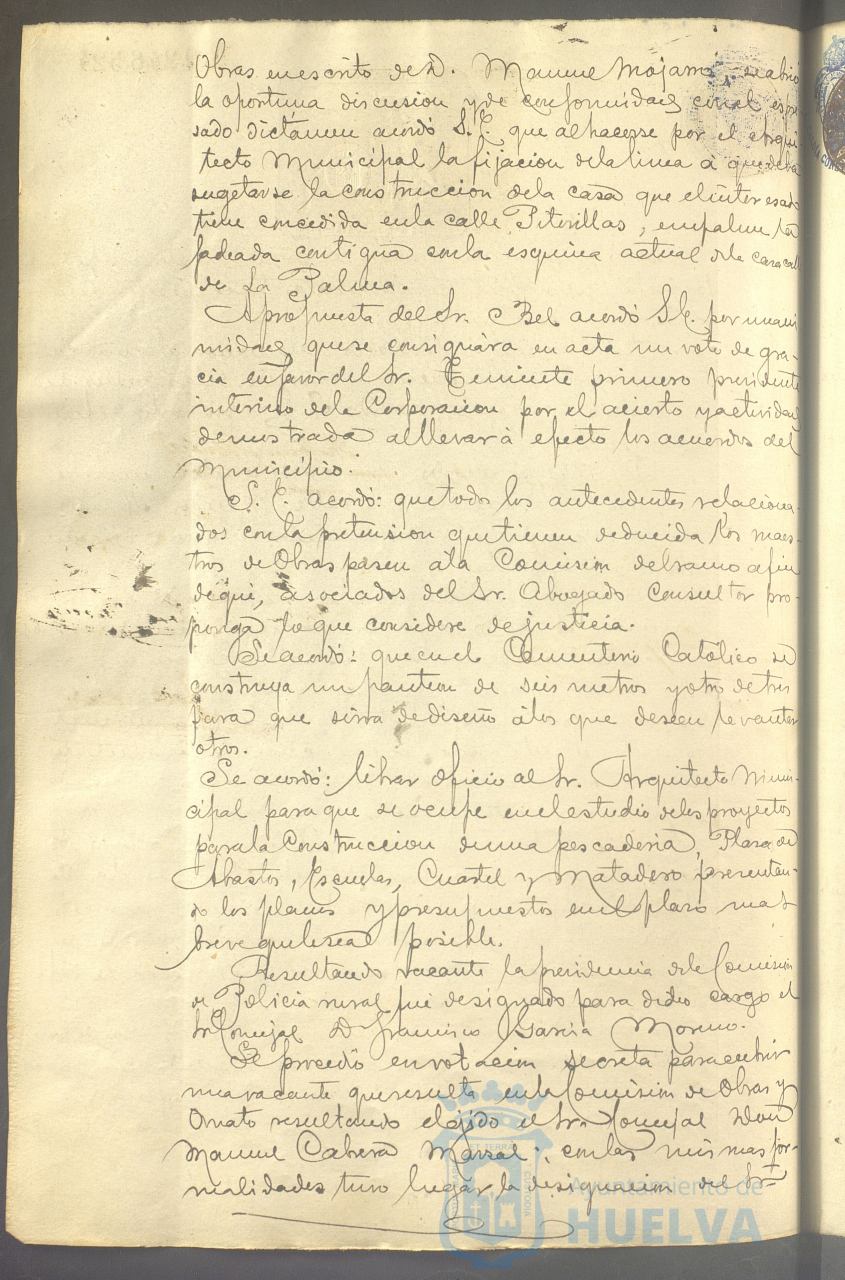 Obras en escrito de D. Manuel Mojarro, se abrió
la oportuna discusion y de conformidad con el espre
sado dictámen acordó S. E. que al hacerse por el arqui
tecto Municipal la fijacion de la linea á que debe
sugetarse la construccion de la casa que el interesado
tiene concedida en la calle Piterillas, empalme la
fachada contigua con la esquina actual de la casa calle
de La Palma.
A propuesta del Sr. Bel acordó S. E. por unani
midad que se consignára en acta un voto de gra-
cia en favor del Sr. Teniente primero presidente
interino de la Corporacion por el acierto y actividad
demostrada al llevar á efecto los acuerdos del
Municipio.
S. E. acordó: que todos los antecedentes relaciona-
dos con la pretension que tienen deducida los maes-
tros de Obras pasen á la Comision del ramo a fin
de que, asociados del Sr. Abogado Consultor pro-
ponga lo que considere de justicia.
Se acordó: que en el Cementerio Católico se
construya un panteon de seis metros y otro de tres
para que sirva de diseño á los que deseen levantar
otros.
Se acordó: librar oficio al Sr. Arquitecto Muni-
cipal para que se ocupe en el estudio de los proyectos
para la Construccion de una pescaderia, Plaza de
Abastos, Escuelas, Cuartel y Matadero presentan-
do los planos y presupuestos en el plazo mas
breve que le sea posible.
Resultando vacante la presidencia de la Comision
de Policia rural fué designado para dicho cargo el
Sr Concejal D Francisco Garcia Moreno.
Se procedió en votacion secreta para cubrir
una vacante que resulta en la Comision de Obras y
Ornato resultando elejido el Sr. Concejal Don
Manuel Cabera Marsal; con las mismas for-
malidades tuvo lugar la designacion del Sr
Ayuntamiento de
HUELVA